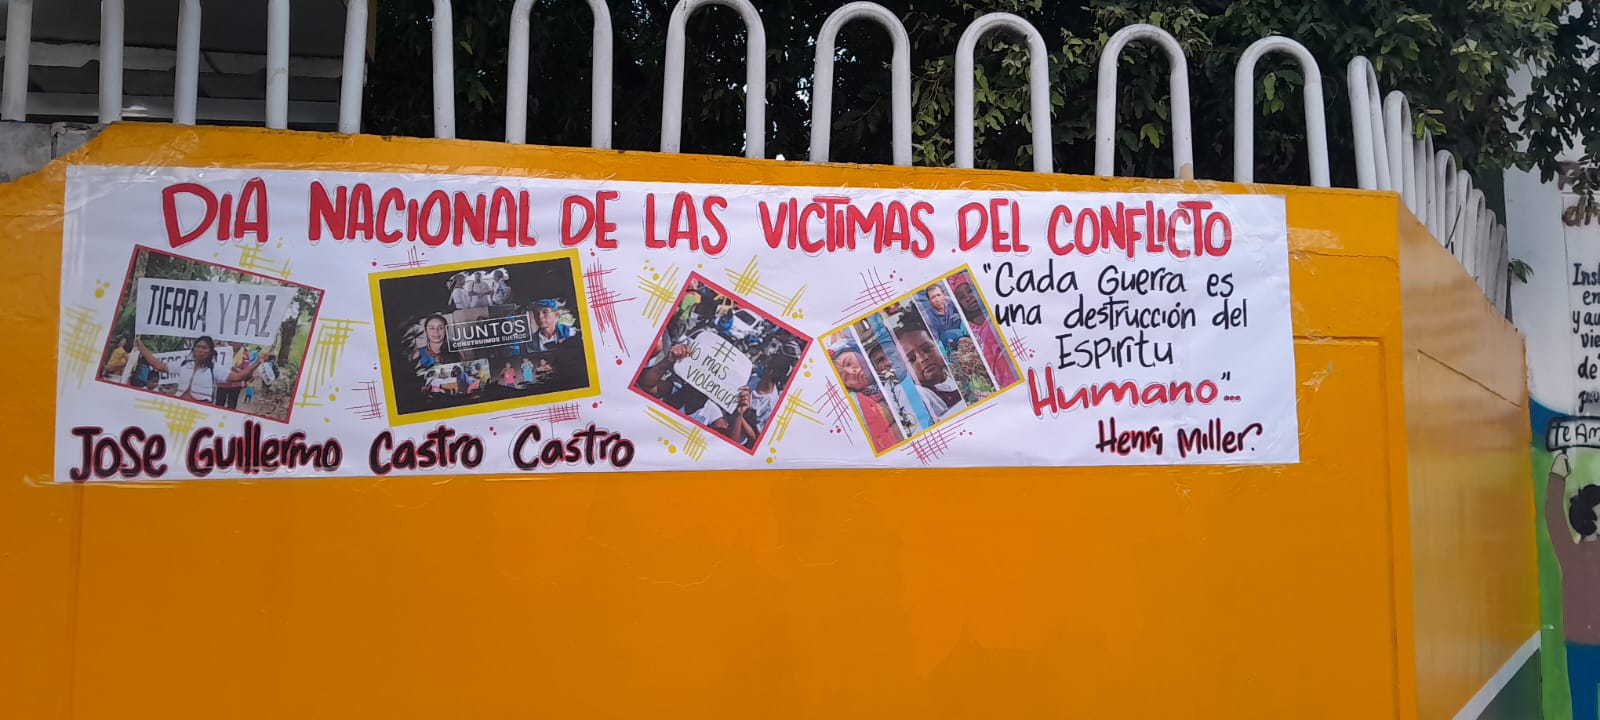 DIA NACIONAL DE LAS VICTIMAS DEL CONFLICTO
TIERRA Y PAZ
JUNTOS
CONSTRUIMOS SUEÑOS
#
No más
violencia
"Cada Guerra es
una destrucción del
Espiritu
Humano"...
Henry Miller.
Jose Guillermo Castro Castro
en
y au
vie
de
Te Am